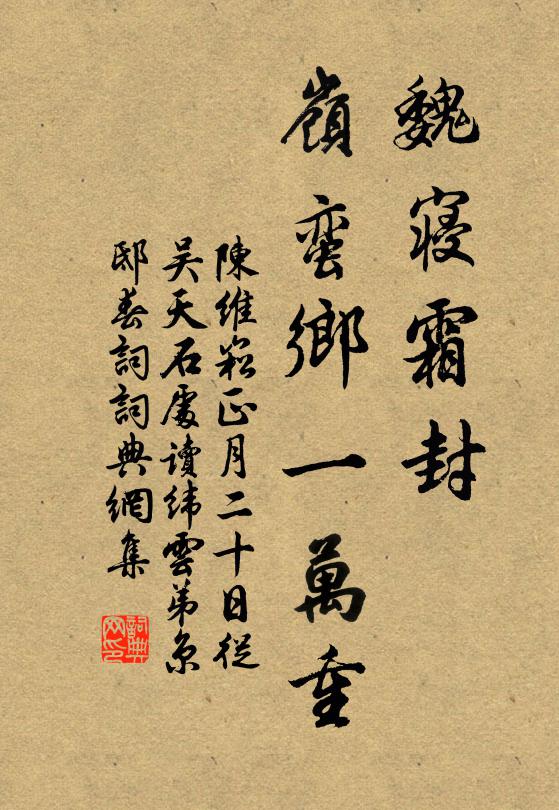 魏寝霜封
嶺蛮鄉一萬重
陳維崧正月二十日從
吴天石處讀緯雲弟京
邸春詞詞典網集
詞典
网印